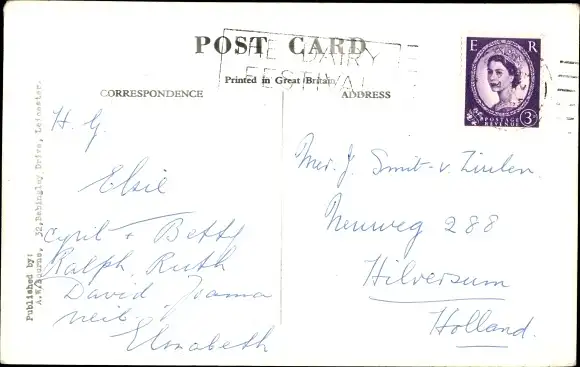 POST CARD
THE DAIRY
FESTIVAL
Printed in Great Britain
CORRESPONDENCE
ADDRESS
E R
POSTAGE
REVENUE
3D
H. G.
Elsie
Cyril + Betty
Ralph, Ruth
David Joanna
Neil.
Elizabeth
Mevr. J. Smit-v. Zinlen.
Neuweg 288
Hilversum
Holland.
Published by:
A.W.Bourne, 32,Babingley Drive, Leicester.